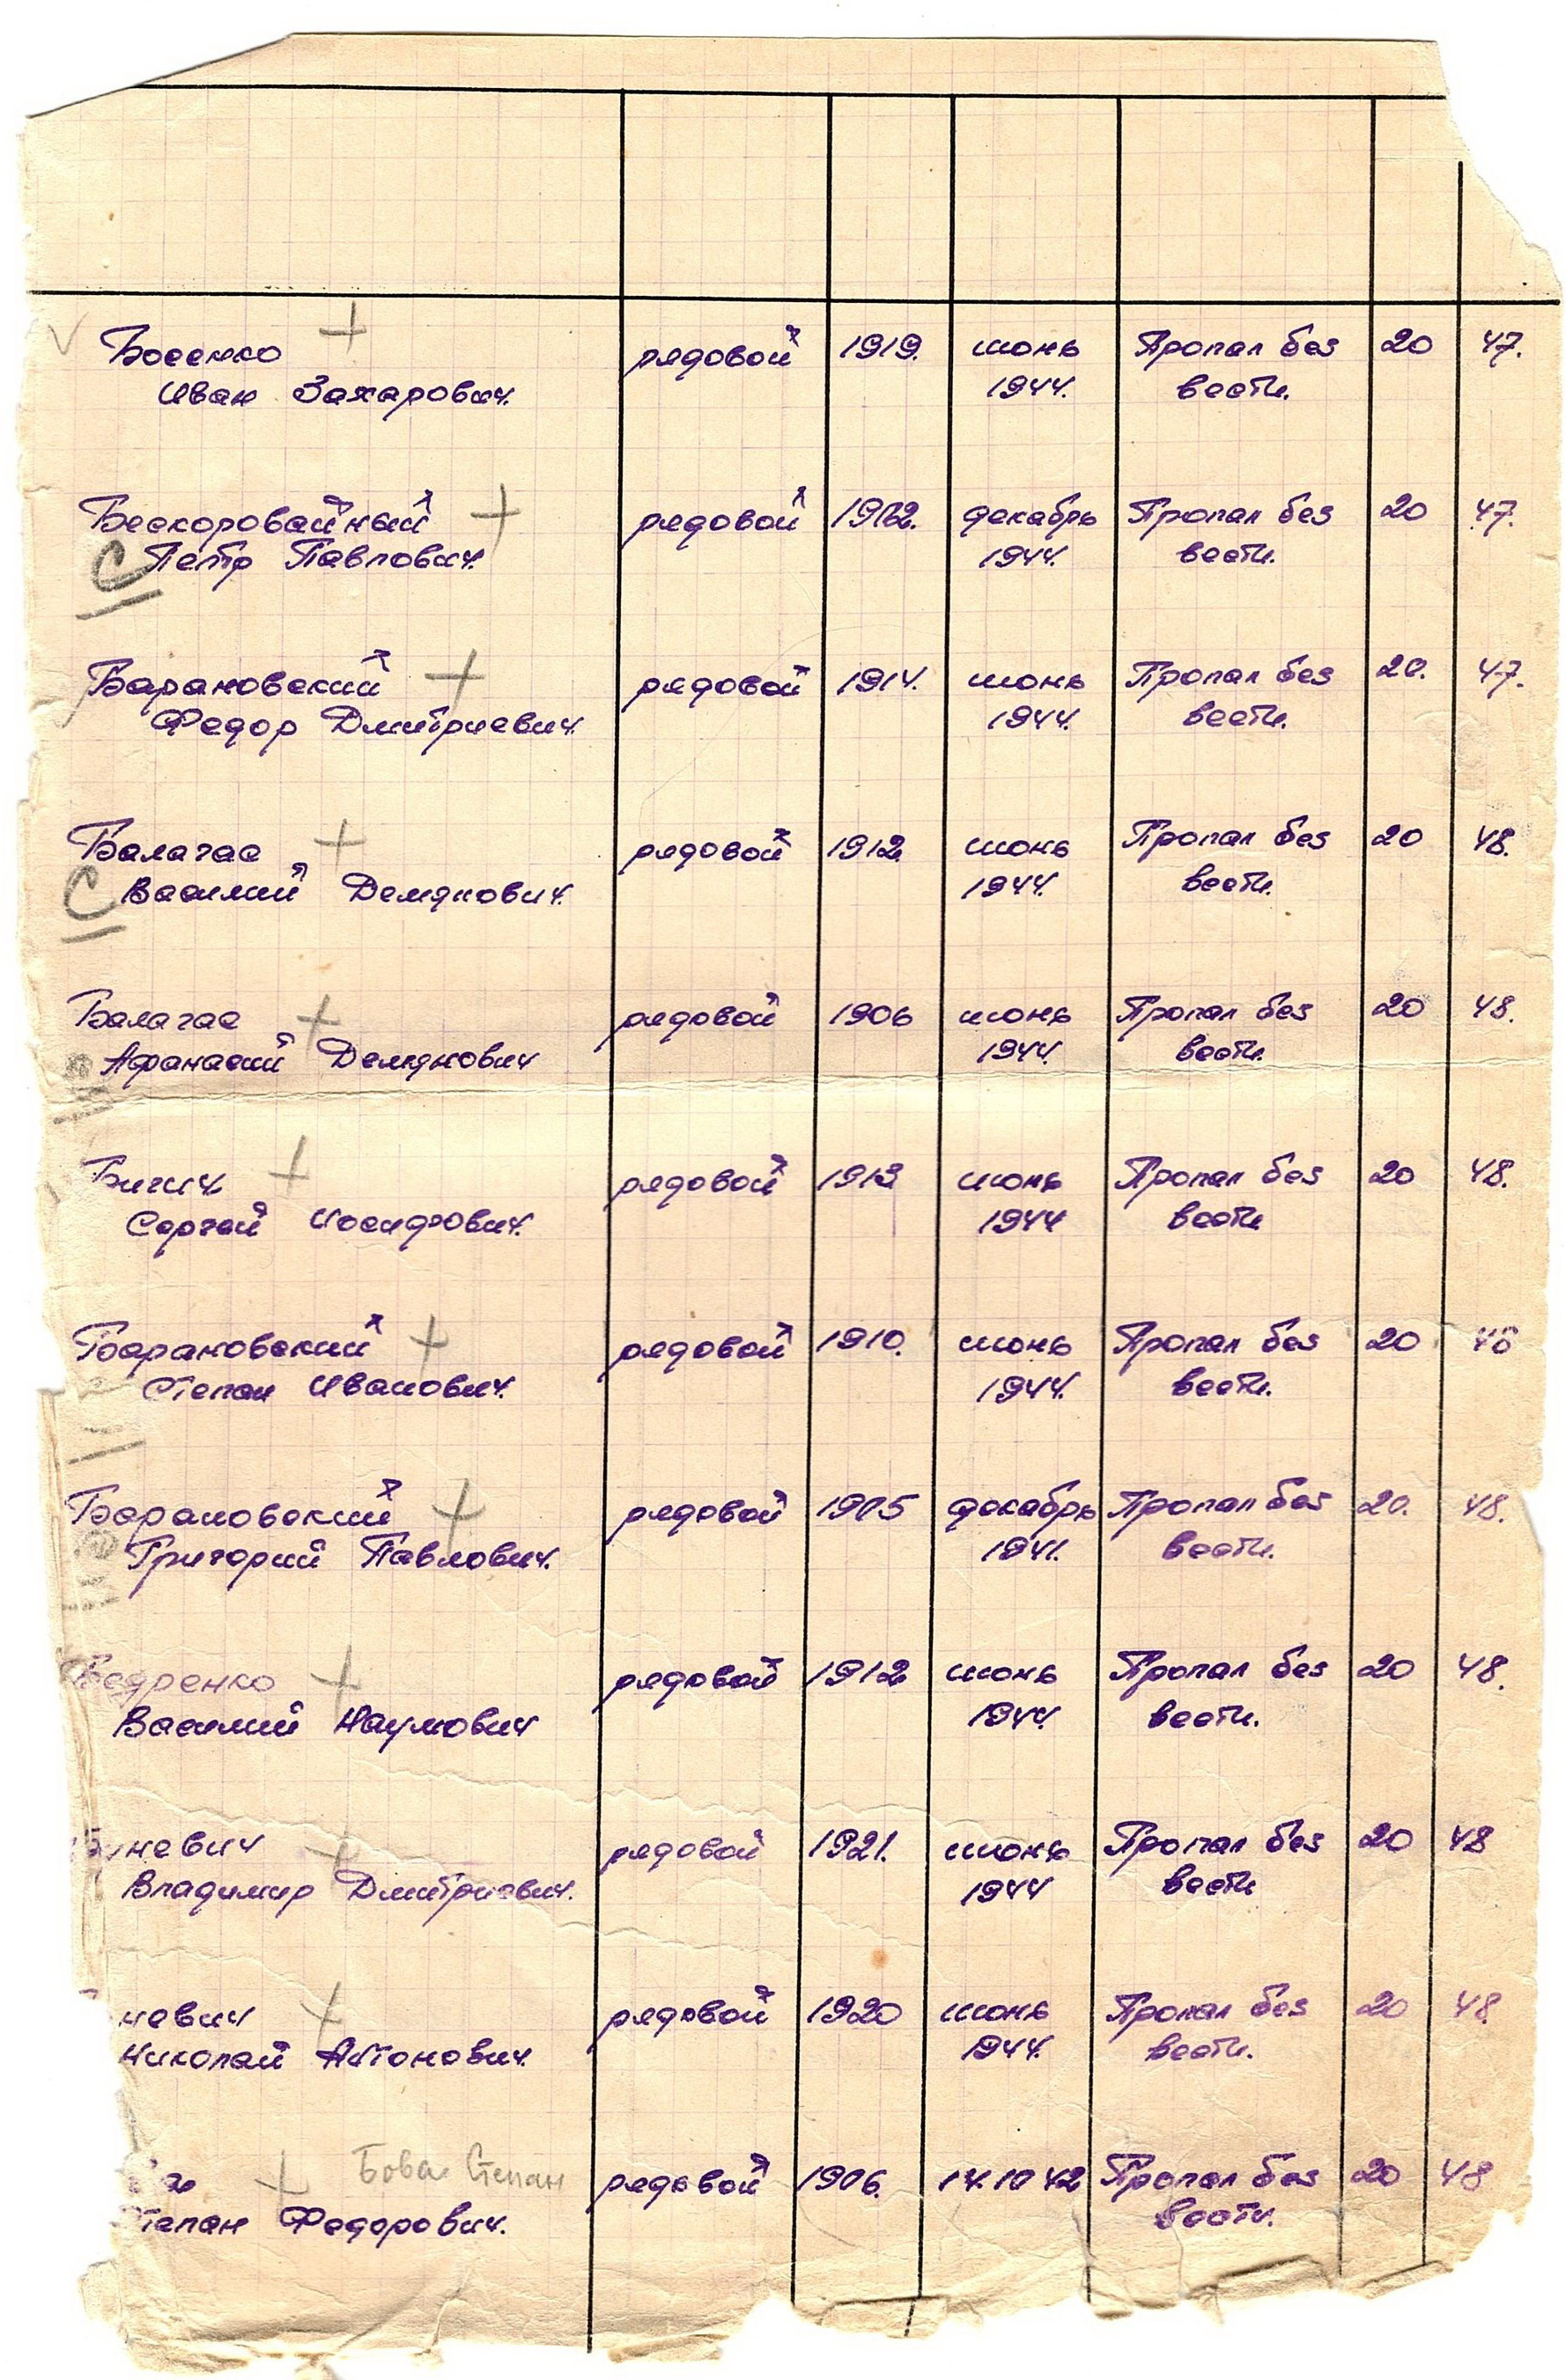 Босенко рядовой 1919. июнь Пропал без 20 47.
Иван Захарович. 1944. вести.
Бескоровайный рядовой 1912. декабрь Пропал без 20 47.
С Петр Павлович. 1944. вести.
Барановский рядовой 1914. июнь Пропал без 20. 47.
Федор Дмитриевич. 1944. вести.
Балагас рядовой 1912 июнь Пропал без 20 48.
С Василий Демянович. 1944. вести.
Балагас рядовой 1906 июнь Пропал без 20 48.
Афанасий Демянович 1944. вести.
Бигич рядовой 1913 июнь Пропал без 20 48.
Сергей Иосифович. 1944 вести
Барановский рядовой 1910. июнь Пропал без 20 48
Степан Иванович. 1944. вести.
Барановский рядовой 1905 декабрь Пропал без 20. 48.
Григорий Павлович. 1941. вести.
Бедренко рядовой 1912 июнь Пропал без 20 48.
Василий Наумович 1944. вести.
невич рядовой 1921. июнь Пропал без 20 48
Владимир Дмитриевич. 1944 вести
невич рядовой 1920 июнь Пропал без 20 48.
Николай Антонович. 1944. вести.
Бова Степан рядовой 1906. 14.10 42 Пропал без 20 48
тепан Федорович. вести.